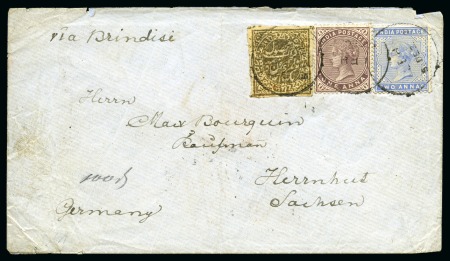 via Brindisi
INDIA POSTAGE
ONE ANNA
INDIA POSTAGE
TWO ANNAS
Herrn
Max Bourquin
Kaufman
Herrnhut
Sachsen
Germany